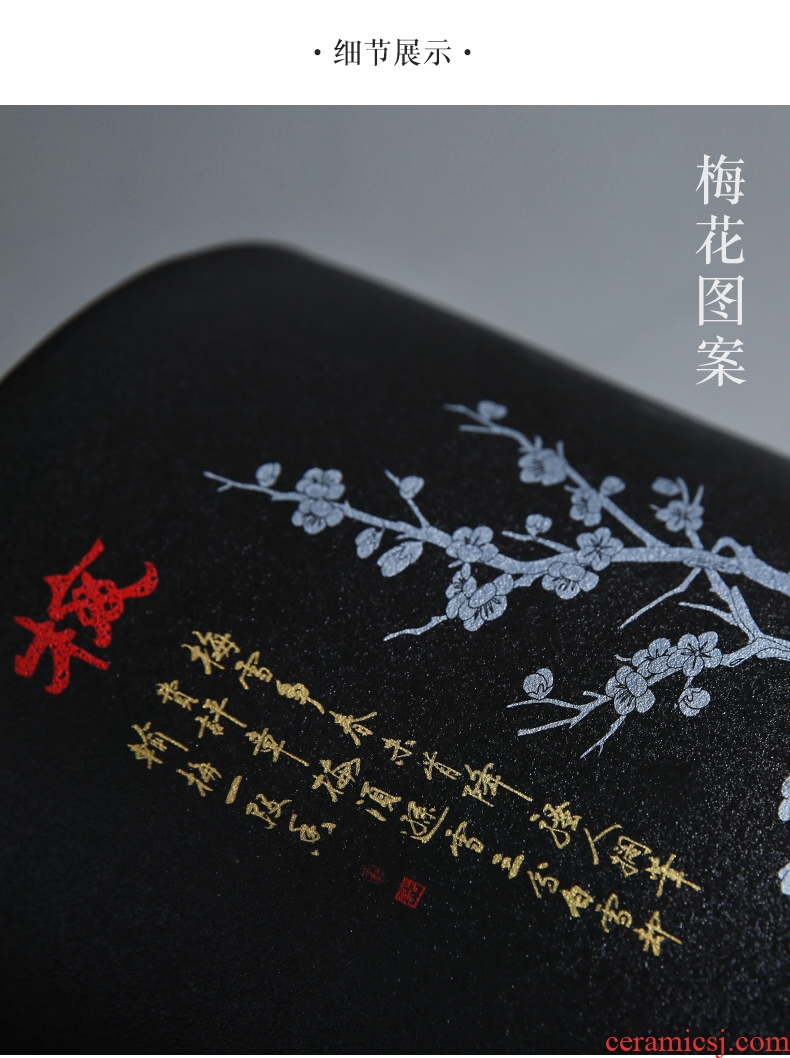 ·细节展示·
梅花图案
梅
梅雪争春未肯降 骚人阁笔
费评章 梅须逊雪三分白 雪却
输梅一段香
ceramicsj.com